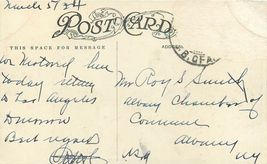 March 5/34
POST CARD
THIS SPACE FOR MESSAGE
ADDRESS
B.OF A
Mr Roy S Smith
Albany Chamber of
Commerce
Albany
N.Y.
Motored here
today return
to Los Angeles
Tomorrow
Best regards